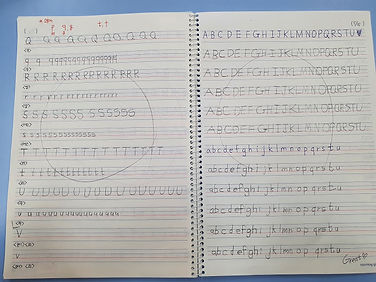 Q QQQQQQQQQQQ
q q qqqqqqqqqqqqq
R R R R R R R R R R R R R R
r r r r r r r r r r r r r r
S S S S S S S S S S S S S S
s s s s s s s s s s s s s s
T T T T T T T T T T T T T T
t t t t t t t t t t t t
U U U U U U U U U U U U U
u u u u u u u u u u u u u u u
V
V
ABCDEFGHIJKLMNOPQRSTUV
ABCDEFGHIJKLMNOPQRSTU
ABCDEFGHIJKLMNOPQRSTU
ABCDEFGHIJKLMNOPQRSTU
ABCDEFGHIJKLMNOPQRSTU
ABCDEFGHIJKLMNOPQRSTU
abcdefghijklmnopqrstu
abcdefghijklmnopqrstu
abcdefghijklmnopqrstu
abcdefghijklmnopqrstu
abcdefghijklmnopqrstu
abcdefghijklmnopqrstu
Great